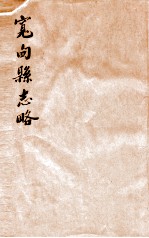 寬甸縣志略